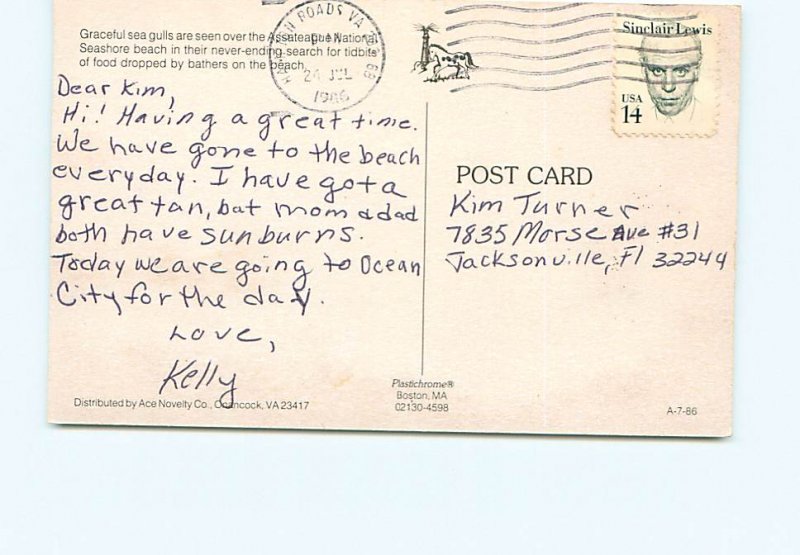 Graceful sea gulls are seen over the Assateague National
Seashore beach in their never-ending search for tidbits
of food dropped by bathers on the beach.
HAMPTON ROADS VA
PM
24 JUL
1986
Sinclair Lewis
USA
14
Dear Kim,
Hi! Having a great time.
We have gone to the beach
everyday. I have got a
great tan, but mom & dad
both have sunburns.
Today we are going to Ocean
City for the day.
Love,
Kelly
POST CARD
Kim Turner
7835 Morse Ave #31
Jacksonville, Fl 32244
Distributed by Ace Novelty Co., Onancock, VA 23417
Plastichrome®
Boston, MA
02130-4598
A-7-86